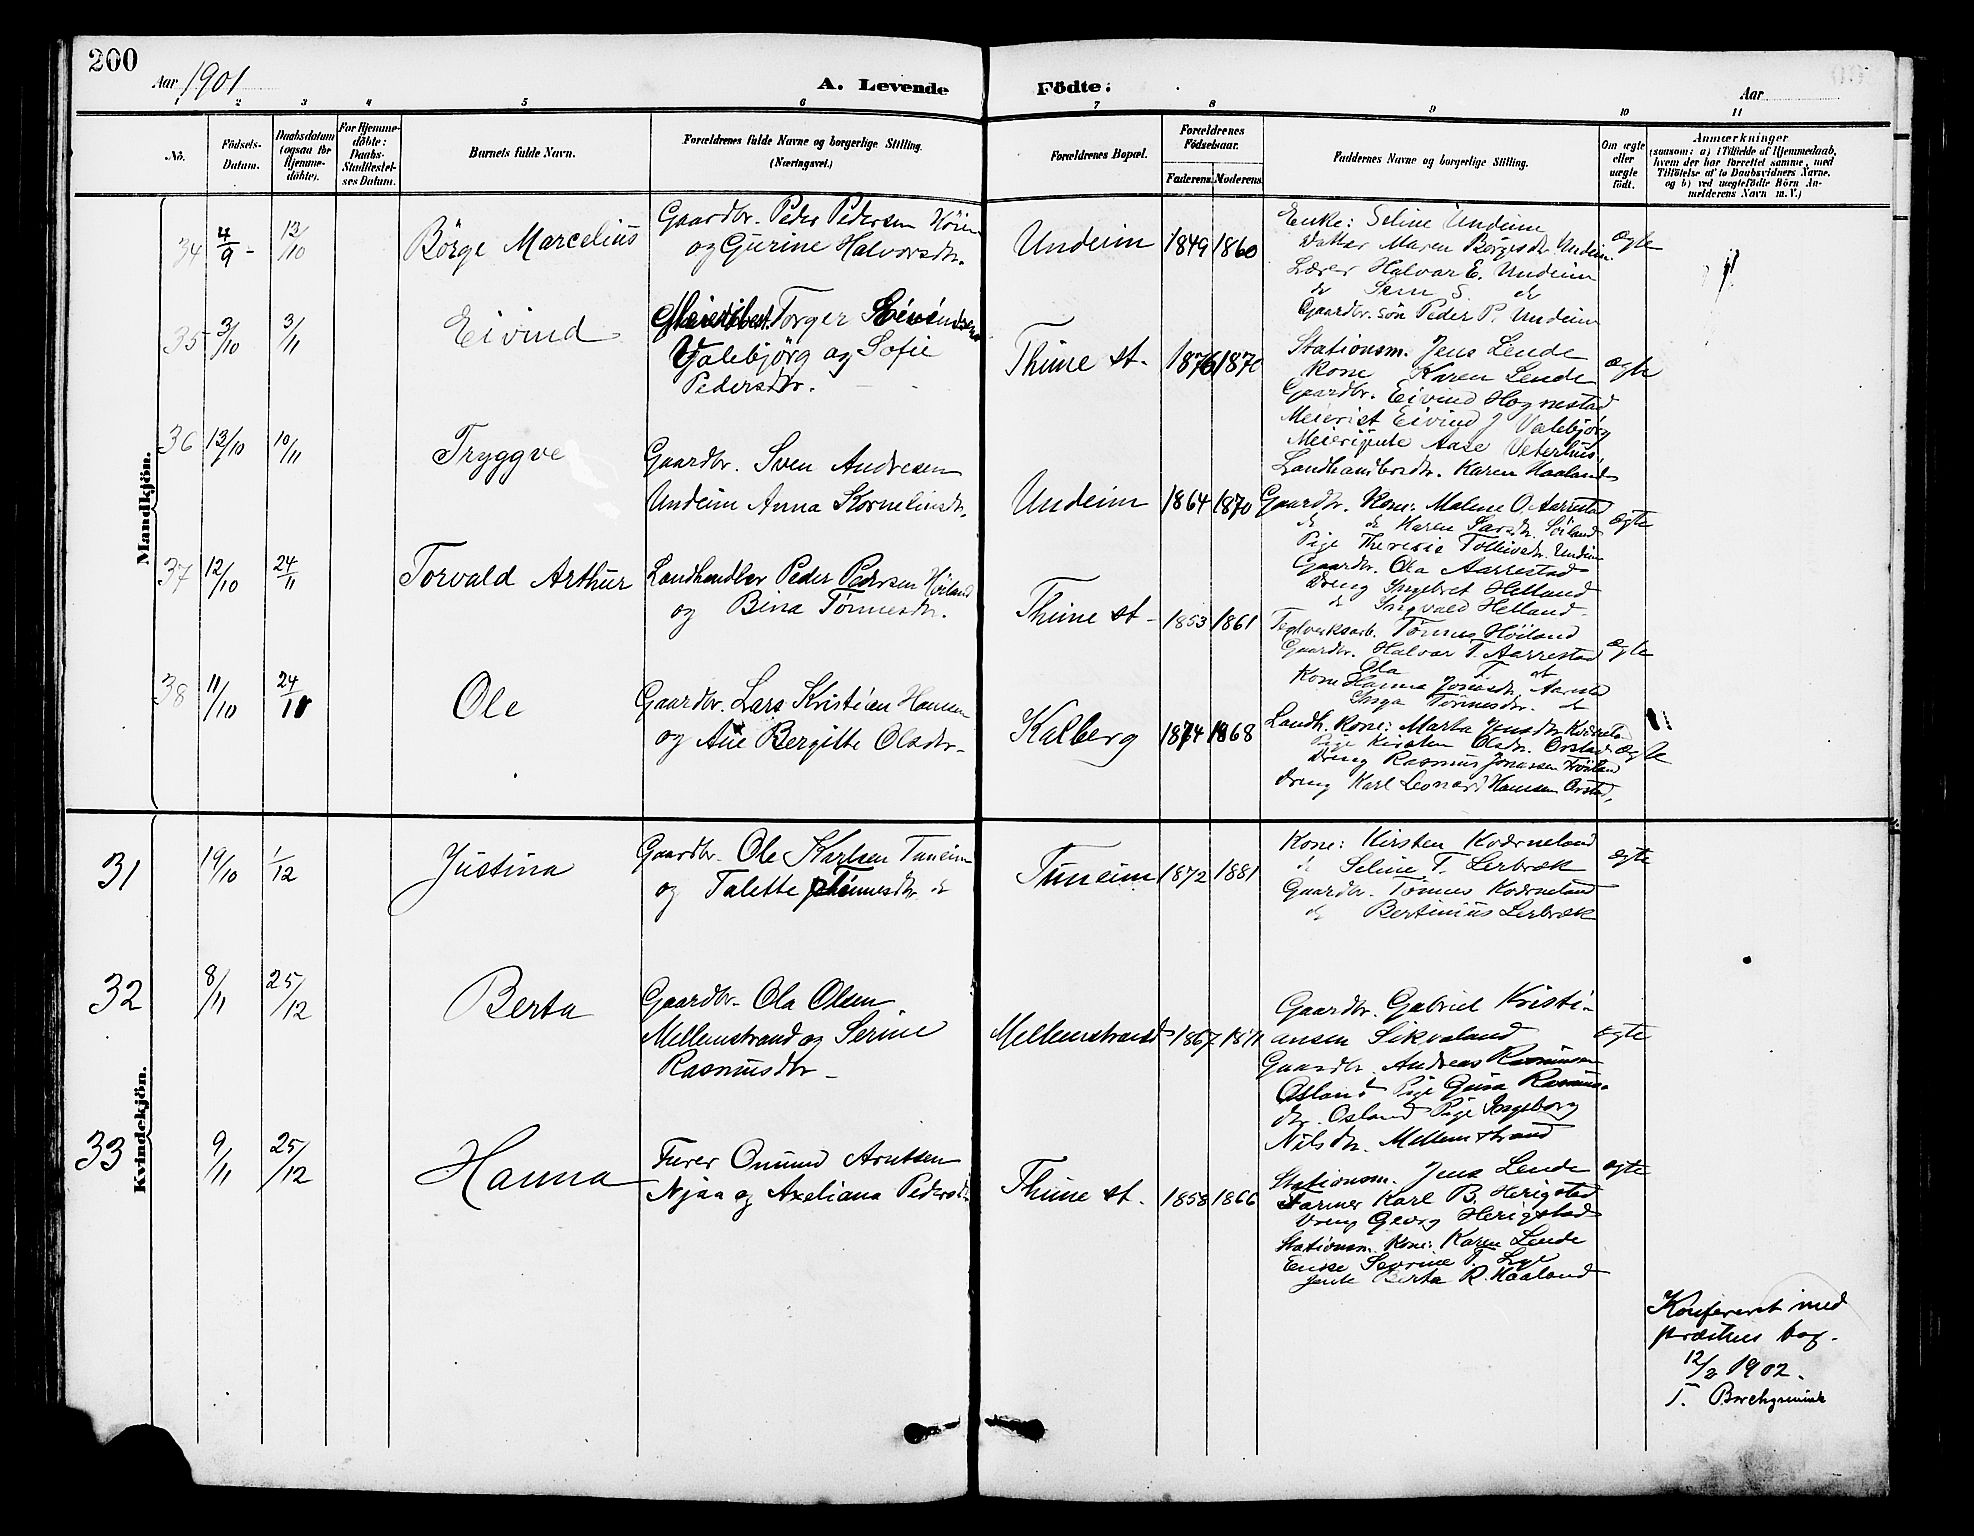 200
Aar 1901
A. Levende Födte.
Aar
1 2 3 4 5 6 7 8 9 10 11
No.
Födsels-Datum.
Daabsdatum (ogsaa for Hjemme-döbte).
For Hjemme-döbte: Daabs-Stadfæstel-ses Datum.
Barnets fulde Navn.
Forældrenes fulde Navne og borgerlige Stilling.
(Næringsvei.)
Forældrenes Bopæl.
Forældrenes Födselsaar.
Faderens. Moderens.
Faddernes Navne og borgerlige Stilling.
Om ægte eller uægte födt.
Anmærkninger
(saasom: a) i Tilfælde af Hjemmedaab,
hvem der har forrettet samme, med
Tilföielse af to Daabsvidners Navne,
og b) ved uægtefödte Börn An-
melderens Navn m. V.)
Mandkjön.
34 4/9 - 13/10 Börge Marcelius
Gaardbr. Peder Pedersen
og Gurine Halvorsdr.
Undeim 1849 1860
Enke: Seline Undeim
Datter Maren Börgesdr. Undeim.
Lærer Halvar E. Undeim
do Sem S. do
Gaardbr. sön Peder P. Undeim
ægte
35 3/10 3/11 Eivind
Torger Eivindsen
Valebjörg og Sofie
Pedersdr.
Thime st. 1876 1870
Stationsm. Jens Lende
Kone Karen Lende
Gaardbr. Eivind Hognestad
Meierist Eivind J Valebjörg
Meieripute Aase Veterhus,
Landhandlersdr. Karen Haaland
ægte
36 13/10 10/11 Tryggve
Gaardbr. Sven Andresen
Undeim Anna Kornelinsdr.
Undeim 1864 1870
Gaardbr. Kone: Malene O. Aarrestad
do do Karen Larsdr. Söiland
Pige Theresie Tollivsdr. Undeim
Gaardbr. Ola Aarrestad
Dreng Ingebret Helland
do Ingvald Helland
ægte
37 12/10 24/11 Torvald Arthur
Landhandler Peder Pedersen Höiland
og Bina Tönnesdr.
Thime st. 1853 1861
Teglverksarb. Tönnes Höiland
Gaardbr. Halvar T. Aarrestad
Ola T. do
Kone Hanna Jonasdr. Aarrestad
Inga Tönnesdr. do
ægte
38 11/10 24/11 Ole
Gaardbr. Lars Kristian Hansen
og Ane Bergitte Olsdr.
Kalberg 1874 1868
Landh. Kone: Marta Jensdr. Kverneland
Pige Kirsten Olsdr. Orstad
Dreng Rasmus Jonassen Fröiland
Dreng Karl Leonard Hansen Orstad,
ægte
Kvindekjön.
31 19/10 1/12 Justina
Gaardbr. Ole Karlsen Tuneim
og Talette Tönnesdr. do
Tuneim 1872 1881
Kone: Kirsten Kverneland
do Seline T. Lerbræk
Gaardbr. Tönnes Kverneland
do Bertinius Lerbræk
ægte
32 8/11 25/12 Berta
Gaardbr. Ola Olsen
Mellemstrand og Serine
Rasmusdr.
Mellemstrand 1867 1871
Gaardbr. Gabriel Kristi-
ansen Sikvaland
Gaardbr. Andreas Rasmussen
Osland Pige Gina Rasmus-
dr. Osland Pige Ingeborg
Nilsdr. Mellemstrand
ægte
33 9/11 25/12 Hanna
Furer Omund Arntsen
Njaa og Axeliana Pedersdr.
Thime st. 1858 1866
Stationsm. Jens Lende
Farmer Karl B. Herigstad
Dreng Georg Herigstad
Stationsm. Kone: Karen Lende
Enke Severine T. Lye
Jente Berta R. Haaland
ægte
Konfereret med
præstens bog.
12/2 1902.
T.